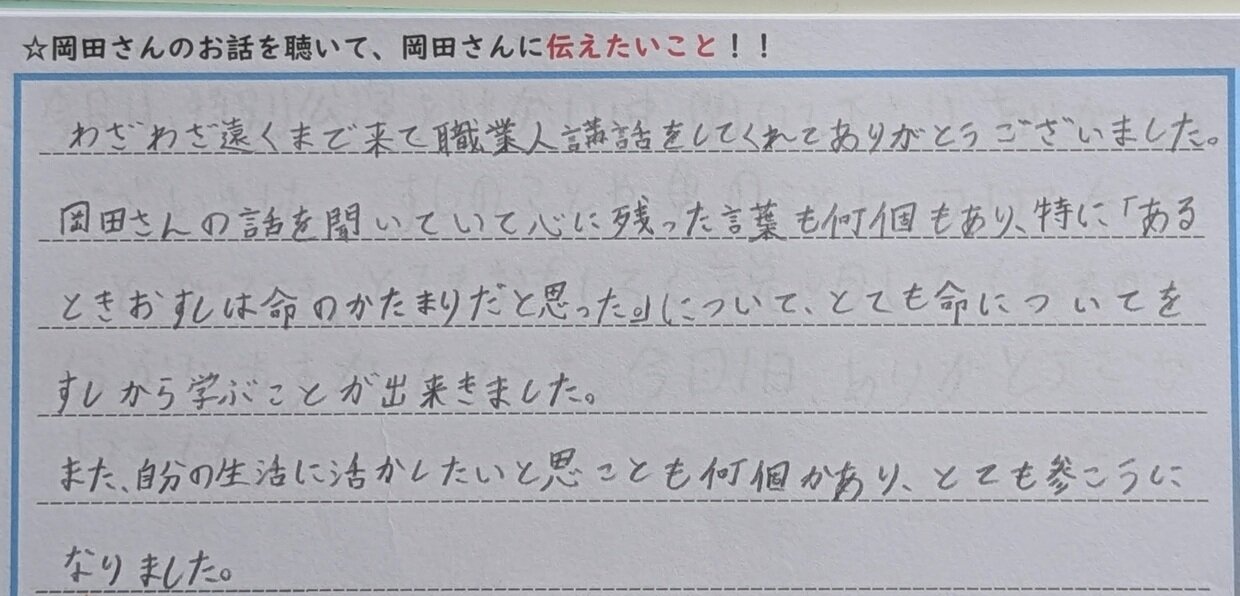 ☆岡田さんのお話を聴いて、岡田さんに伝えたいこと！！
わざわざ遠くまで来て職業人講話をしてくれてありがとうございました。
岡田さんの話を聞いていて心に残った言葉も何個もあり、特に「ある
ときおすしは命のかたまりだと思った。」について、とても命についてを
すしから学ぶことが出来きました。
また、自分の生活に活かしたいと思ことも何個かあり、とても参こうに
なりました。